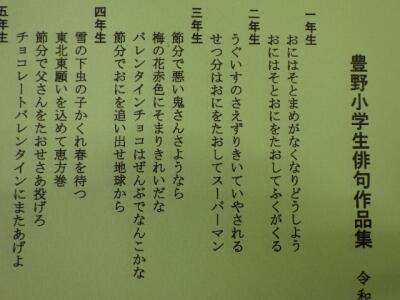 豊野小学生俳句作品集 令和
一年生
おにはそとまめがなくなりどうしよう
おにはそとおにをたおしてふくがくる
二年生
うぐいすのさえずりきいていやされる
せつ分はおにをたおしてスーパーマン
三年生
節分で悪い鬼さんさようなら
梅の花赤色にそまりきれいだな
バレンタインチョコはぜんぶでなんこかな
節分でおにを追い出せ地球から
四年生
雪の下虫の子かくれ春を待つ
東北東願いを込めて恵方巻
節分で父さんをたおせさあ投げろ
チョコレートバレンタインにまたあげよ
五年生